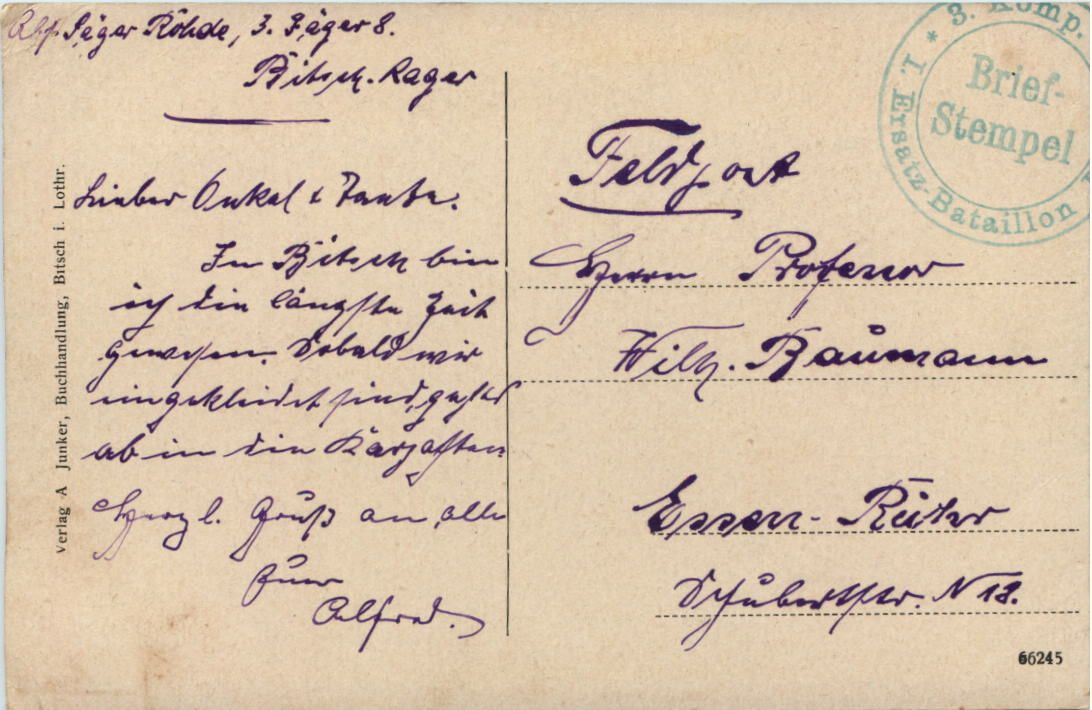 Abs. Jäger Röhde, 3. Jäger 8.
Bitsch. Lager
Lieber Onkel & Tante.
In Bitsch bin
ich die längste Zeit
gewesen. Sobald wir
eingekleidet sind, geht's
ab in die Karpathen.
Herzl. Gruß an alle
Euer
Alfred.
Verlag A Junker, Buchhandlung, Bitsch i. Lothr.
* 3. Komp.
I. Ersatz-Bataillon
Brief-
Stempel
Feldpost
Herrn Professor
Wilh. Baumann
Essen-Rüttsr
Schubertstr. N 18.
66245